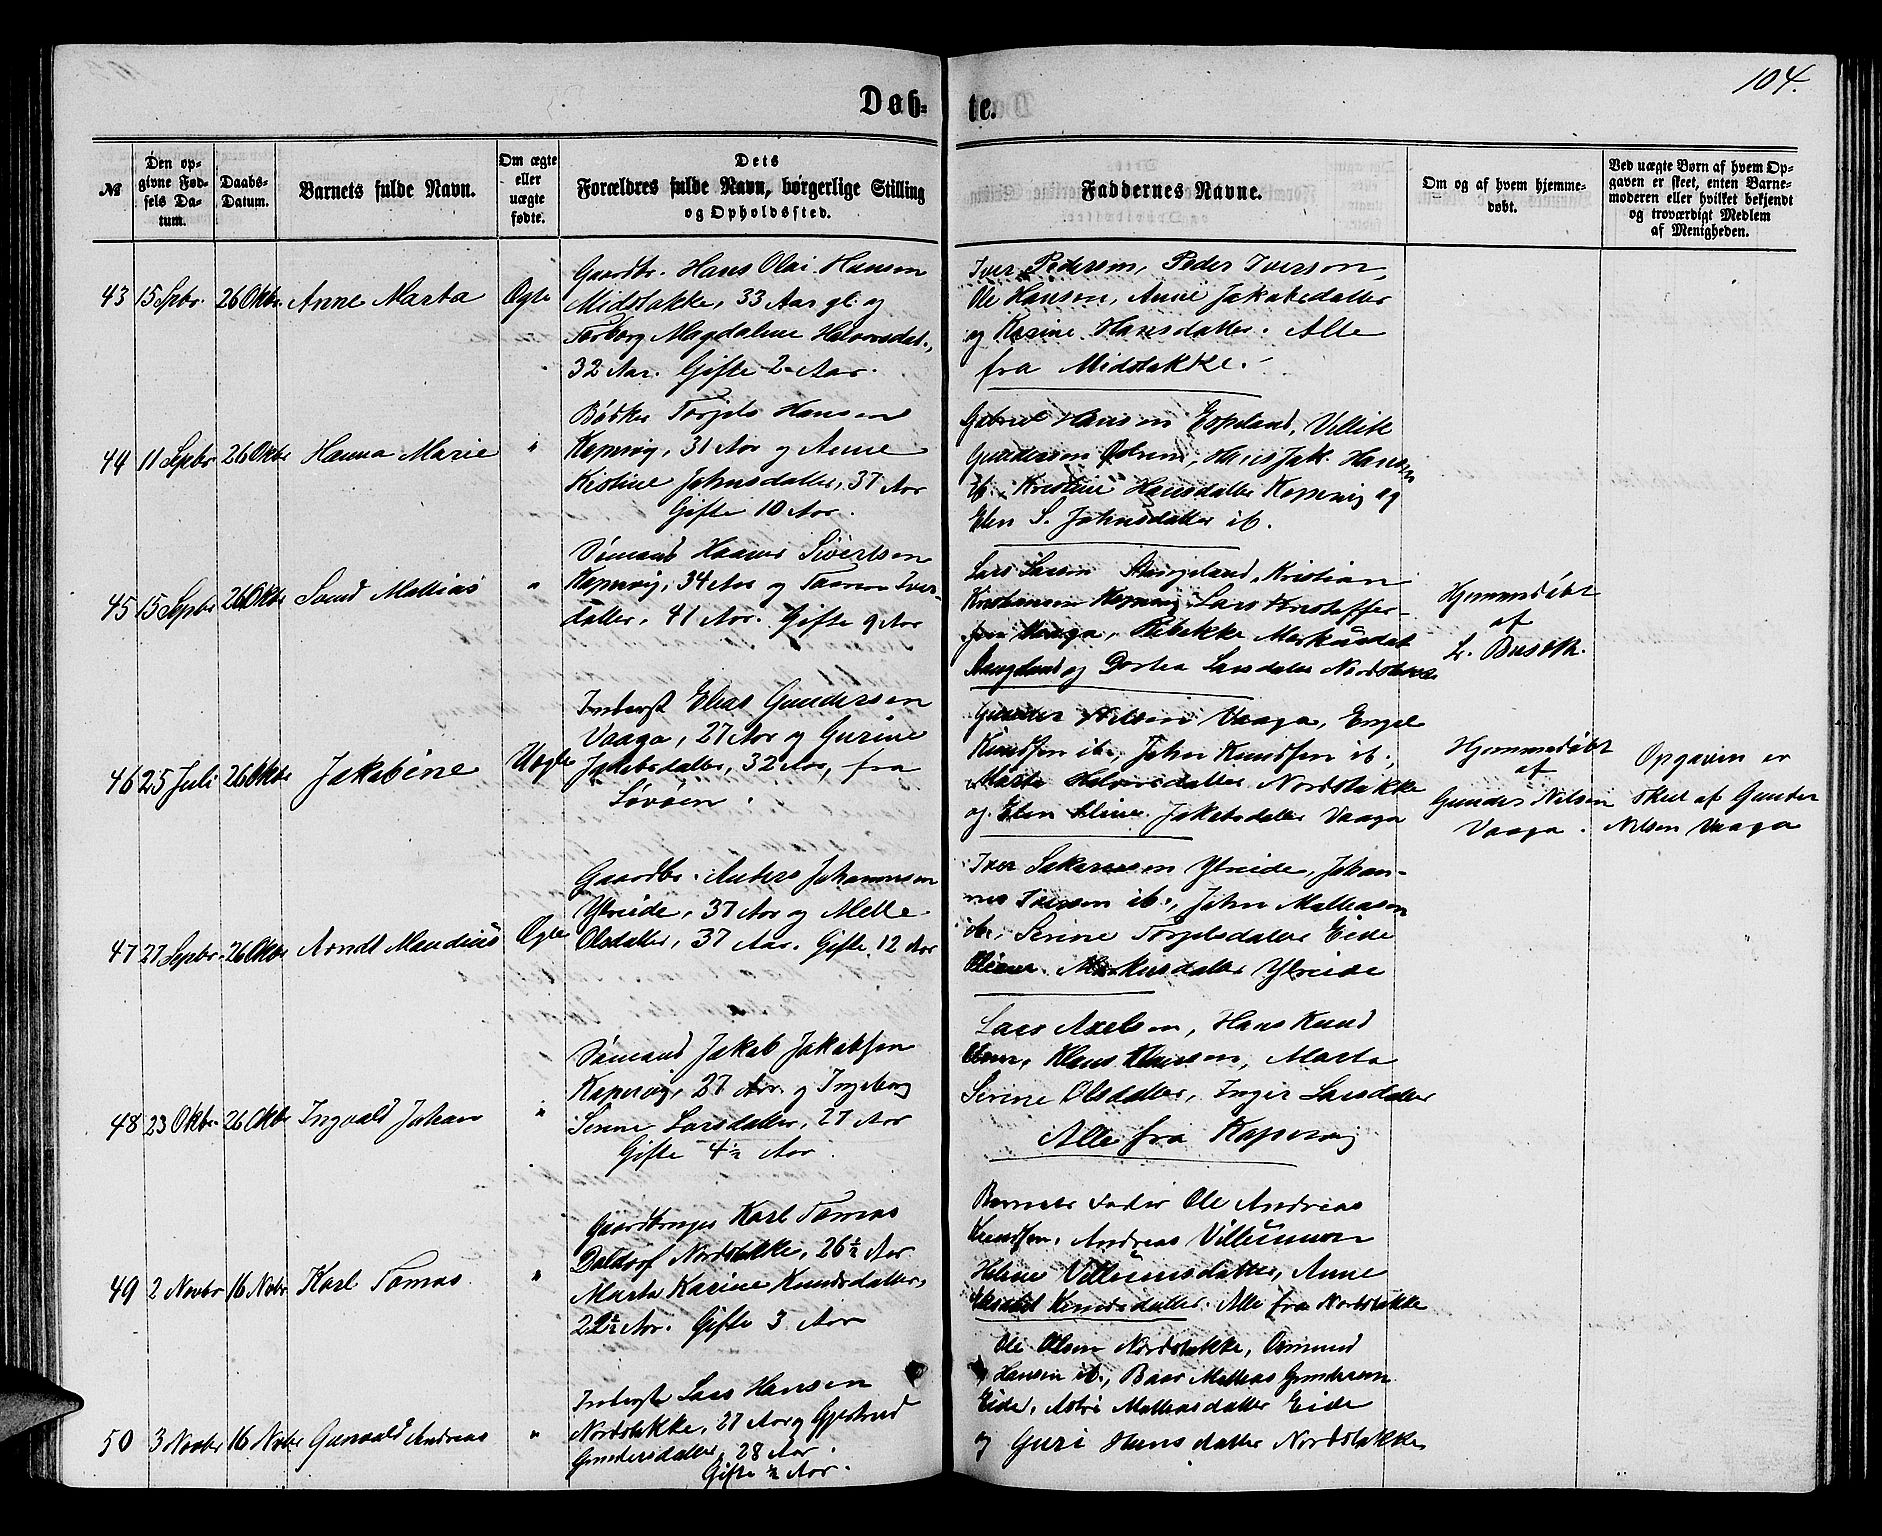 104.
Døb-
te.
№
Den op-
givne Fød-
sels Da-
tum.
Daabs-
Datum.
Barnets fulde Navn.
Om ægte
eller
uægte
fødte.
Dets
Forældres fulde Navn, børgerlige Stilling
og Opholdssted.
Faddernes Navne.
Om og af hvem hjemme-
døbt.
Ved uægte Børn af hvem Op-
gaven er skeet, enten Barne-
moderen eller hvilket bekjendt
og troværdigt Medlem
af Menigheden.
43 15 Spbr. 26 Oktbr. Anne Marta Ægte
Gaardbr. Hans Olai Hansen
Midstokke, 33 Aar gl. og
Torborg Magdalene Halvorsdat.,
32 Aar. Gifte 2 Aar.
Iver Pederson, Peder Iverson,
Ole Hanson, Anne Jakobsdatter
og Karine Hansdatter. Alle
fra Midstokke.
44 11 Septbr 26 Oktbr Hanna Marie "
Bødker Torjels Hansen
Kopervig, 31 Aar og Anne
Kistine Johnsdatter, 37 Aar
Gifte 10 Aar.
Gabriel Hansen Espeland, Villik
Gundersen, Hans Jak. Hansen
ib., Kristine Hansdatter Kopervig og
Elen S. Johnsdatter ib.
45 15 Septbr 26 Oktbr Svend Mathias "
Sømand Sivertsen
Kopervig, 34 Aar og Iver-
datter, 41 Aar. Gifte 9 Aar
Lars Larsen Stangeland, Kristian
Kristiansen Kopervig, Lars Kristoffer-
sen Vaaga, Rebekke Markusdat
Stangeland og Dortea Larsdatter Nordstokke
Hjemmedøbt
af
L. Busth.
46 25 Juli 26 Oktbr Jakobine Uægte
Inderst Elias Gundersen
Vaaga, 27 Aar og Gurine
Jakobsdatter, 32 Aar, fra
Søvøen.
Gunder Nilsen Vaaga, Engel
Knudsen ib., John Knudsen ib.,
Marta Halvorsdatter Nordstokke
og Elen Eline Jakobsdatter Vaaga
Hjemmedøbt
af
Gunder Nilsen
Vaaga.
Opgaven er
skeet af Gunder
Nilsen Vaaga
47 27 Septbr. 26 Oktbr Arndt Mandius Ægte
Gaardbr. Anders Johannesen
Ytreide, 37 Aar og Melle
Olsdatter, 37 Aar. Gifte 12 Aar
Iver Sakariasen Ytreide, Johan-
nes Iversen ib., John Mathiasen
ib., Serine Torjelsdatter Eide
Markusdatter Ytreide
48 23 Oktbr. 26 Oktbr Ingvald Johan "
Sømand Jakob Jakobsen
Kopervig, 27 Aar og Ingeborg
Serine Larsdatter, 27 Aar
Gifte 4½ Aar.
Lars Axelsen, Hans Knud
Klaus, Marta
Serine Olsdatter, Inger Larsdatter
Alle fra Kopervig
49 2 Novbr 16 Novbr Karl Tomas "
Gaardbruger Karl Tomas
Nordstokke, 26½ Aar
Marta Karine Knudsdatter,
22½ Aar. Gifte 3 Aar
Barnets Fader Ole Andreas
Knudsen, Andreas Villumsen
Helene Villumsdatter, Anne
Knudsdatter. Alle fra Nordstokke
50 3 Novbr 16 Novbr Gunvald Andreas "
Inderst Lars Hansen
Nordstokke, 27 Aar og Gjertrud
Gundersdatter, 28 Aar.
Gifte ½ Aar.
Ole Olsen Nordstokke, Osmund
Hansen ib., Baar Mathias Gundersen
Eide, Astri Mathiasdatter Eide
og Guri Hansdatter Nordstokke